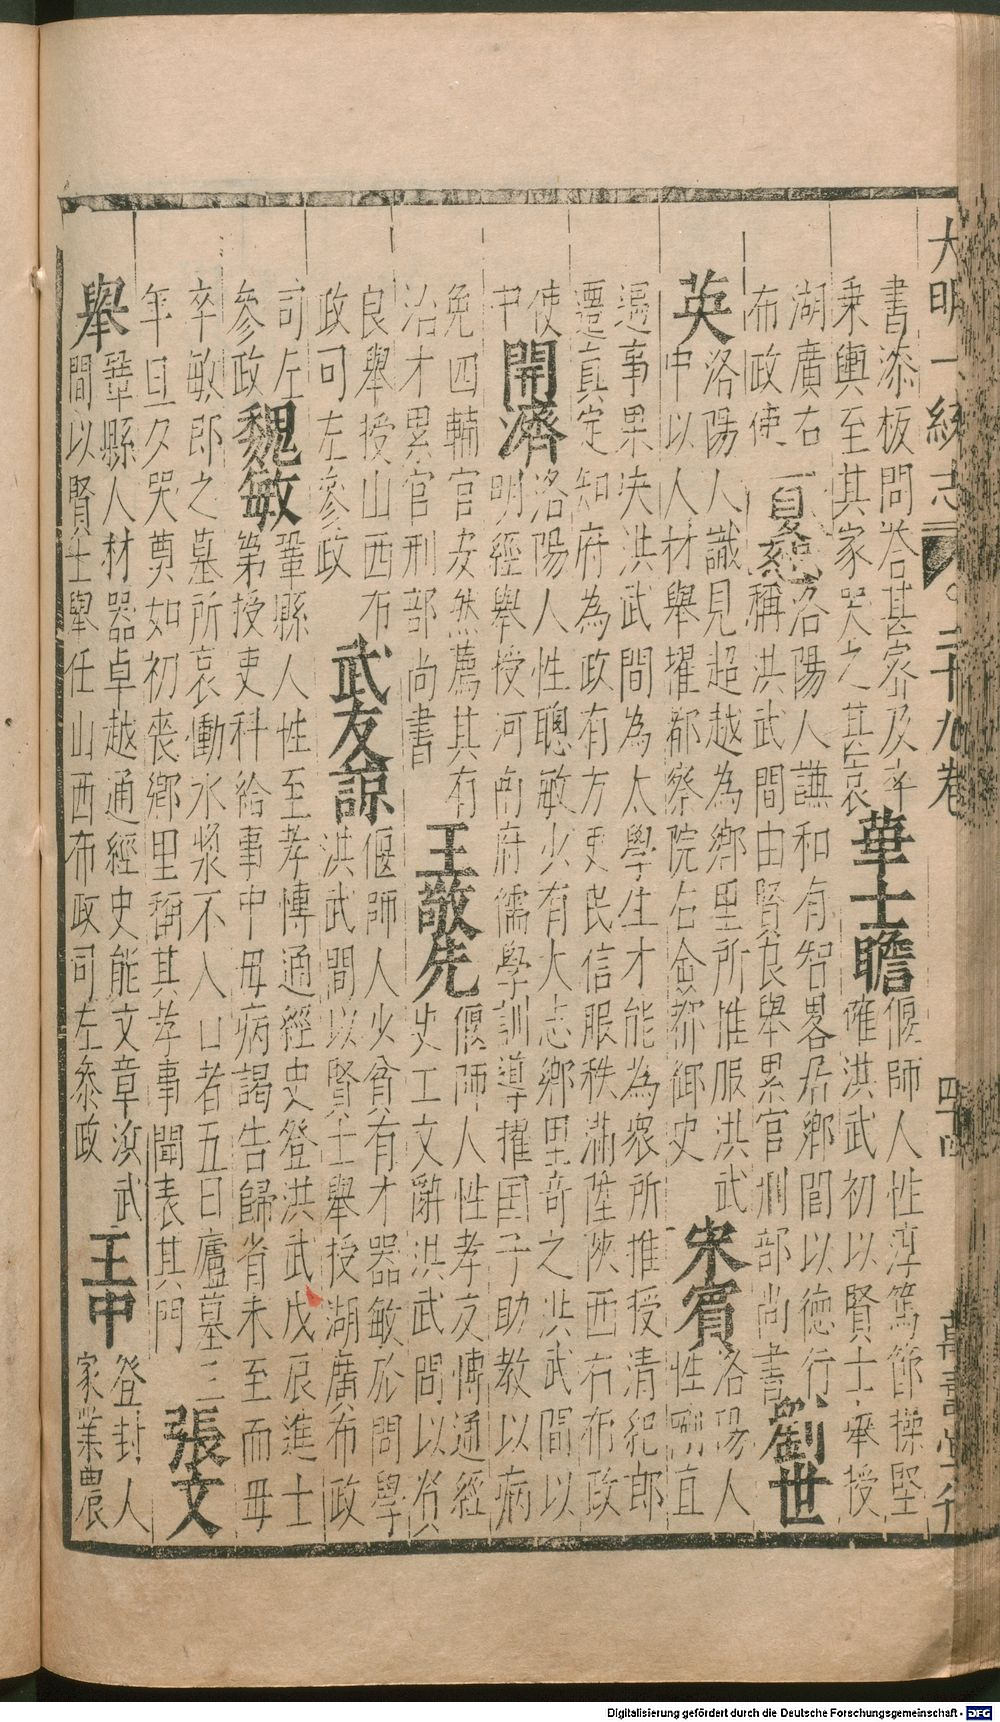 大明一統志 二十九卷 四十
書漆板問答甚及卒
秉輿至其家哭之甚哀
華士瞻
偃師人性淳篤節操堅
確洪武初以賢士舉授
湖廣右
布政使
夏
洛陽人謙和有智畧居鄉閭以徳行
稱洪武間由賢良舉累官刑部尚書
劉世
英
洛陽人識見超越為鄉里所惟服洪武
中以人材舉擢都察院右僉都御史
宋賓
洛陽人
性剛直
遇事果决洪武間為太學生才能為衆所推授清紀郎
遷真定知府為政有方吏民信服秩滿陞陝西右布政
使
中
開濟
洛陽人性聰敏少有大志鄉里奇之洪武間以
明經舉授河南府儒學訓導擢国子助教以病
免四輔官安然薦其有
治才累官刑部尚書
王敬先
偃師人性孝友博通經
史工文辭洪武間以賢
良舉授山西布
政司左參政
武友諒
偃師人少貧有才器敏於問學
洪武間以賢士舉授湖廣布政
司左
參政
魏敏
鞏縣人性至孝慱通經史登洪武戊辰進士
第授吏科給事中毋病謁告歸省未至而毋
卒敏郎之墓所哀慟水漿不入口者五日廬墓三
年旦夕哭奠如初喪鄉里稱其孝事聞表其門
張文
舉
鞏縣人材器卓越通經史能文章洪武
間以賢士舉任山西布政司左參政
王中
登封人
家業農
Digitalisierung gefördert durch die Deutsche Forschungsgemeinschaft - DFG